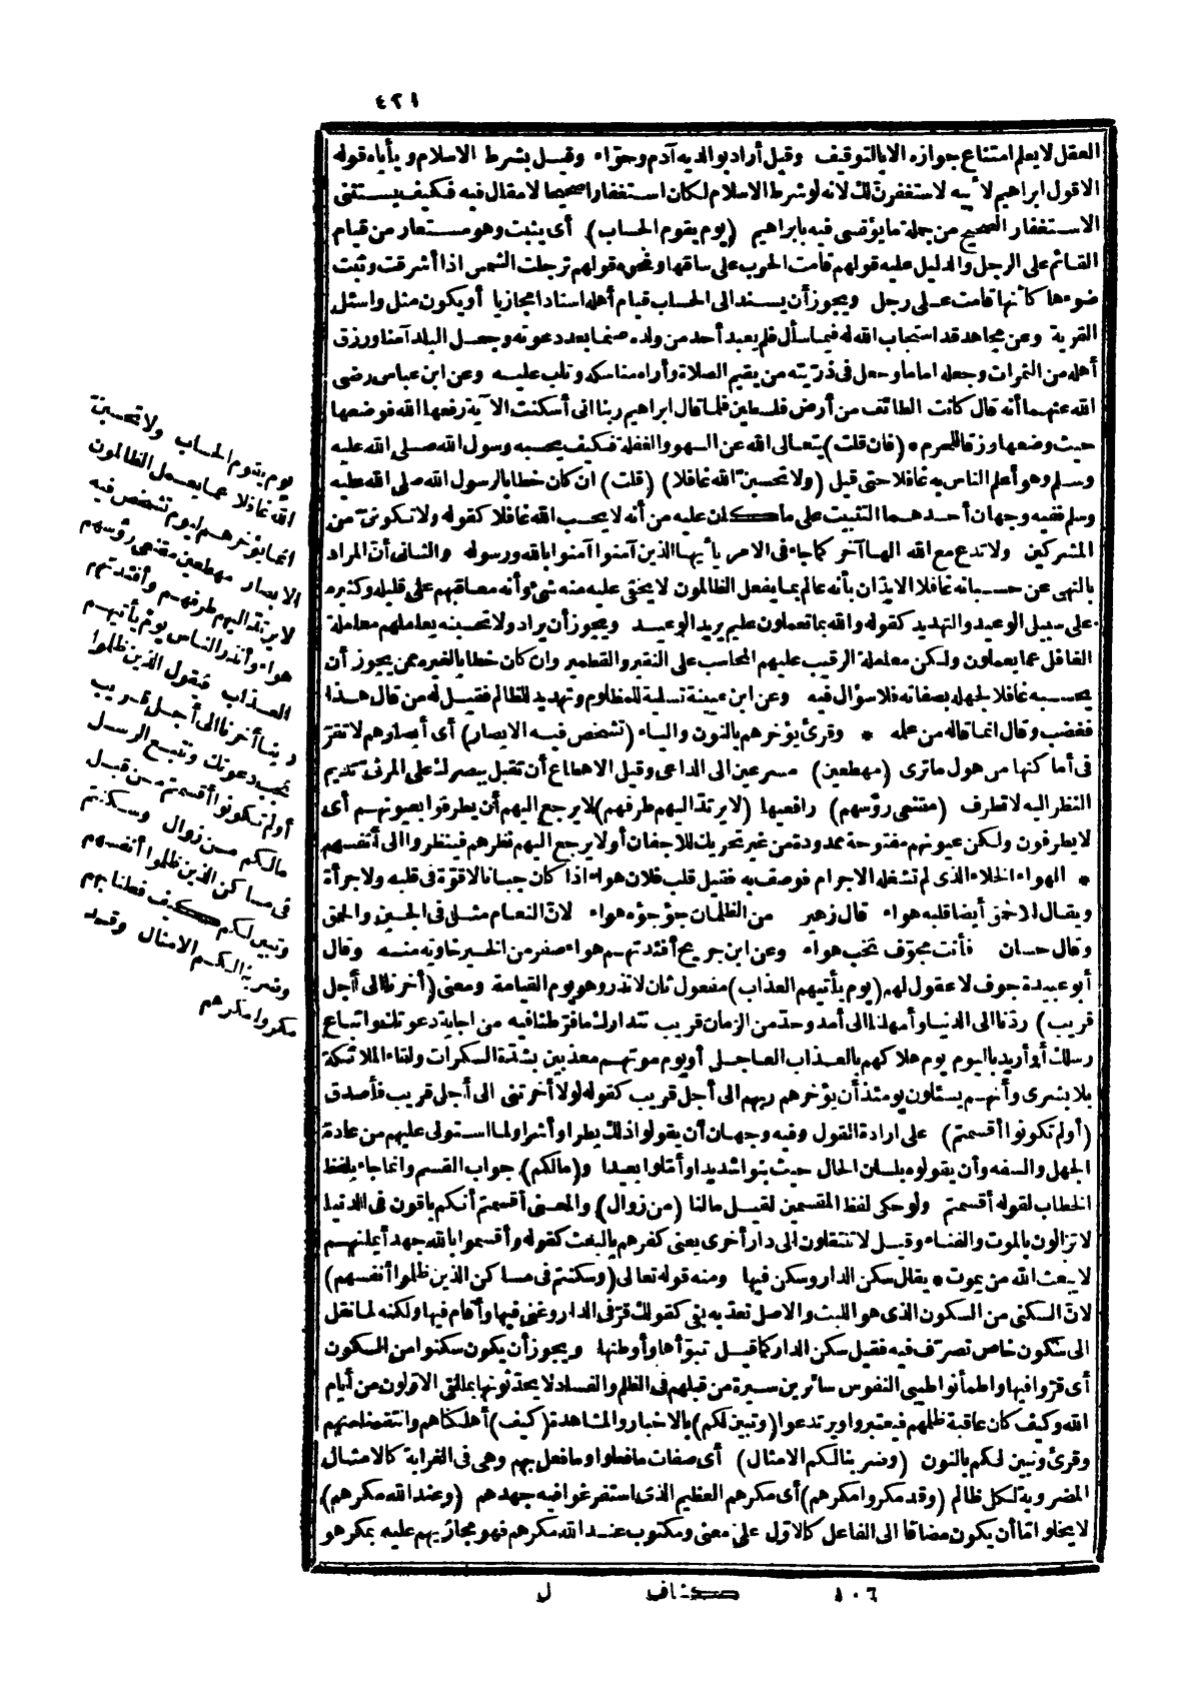 ٤٢١
العقل لا يعلم امتناع جوازه الا بالتوقيف وقيل أراد بوالديه آدم وحوّاء وقيل بشرط الاسلام ويأباه قوله
الا قول ابراهيم لأبيه لاستغفرنّ لك لانه لو شرط الاسلام لكان استغفارا صحيحا لا مقال فيه فكيف يستثنى
الاستغفار الصحيح من جملة ما يؤتسى فيه بابراهيم (يوم يقوم الحساب) أى يثبت وهو مستعار من قيام
القائم على الرجل والدليل عليه قولهم قامت الحرب على ساقها ونحوه قولهم ترجلت الشمس اذا أشرقت وثبت
ضوءها كأنها قامت على رجل ويجوز أن يسند الى الحساب قيام أهله اسنادا مجازيا أو يكون مثل واسئل
القرية وعن مجاهد قد استجاب الله له فيما سأل فلم يعبد أحد من ولده صنما بعد دعوته وجعل البلد آمنا ورزق
أهله من الثمرات وجعله اماما وجعل فى ذرّيته من يقيم الصلاة وأراه مناسكه وتاب عليه وعن ابن عباس رضى
الله عنهما أنه قال كانت الطائف من أرض فلسطين فلما قال ابراهيم ربنا انى أسكنت الآية رفعها الله فوضعها
حيث وضعها رزقا للحرم * (فان قلت) يتعالى الله عن السهو والغفلة فكيف يحسبه رسول الله صلى الله عليه
وسلم وهو أعلم الناس به غافلا حتى قيل (ولا تحسبنّ الله غافلا) (قلت) ان كان خطابا لرسول الله صلى الله عليه
وسلم ففيه وجهان أحدهما التثبيت على ما كان عليه من أنه لا يحسب الله غافلا كقوله ولا تكوننّ من
المشركين ولا تدع مع الله الها آخر كما جاء فى الامر يأيها الذين آمنوا آمنوا بالله ورسوله والثانى أنّ المراد
بالنهى عن حسبانه غافلا الايذان بأنه عالم بما يفعل الظالمون لا يخفى عليه منه شئ وأنه معاقبهم على قليله وكثيره
على سبيل الوعيد والتهديد كقوله والله بما تعملون عليم يريد الوعيد ويجوز أن يراد ولا تحسبنه يعاملهم معاملة
الغافل عما يعملون ولكن معاملة الرقيب عليهم المحاسب على النقير والقطمير وان كان خطابا لغيره ممن يجوز أن
يحسبه غافلا لجهله بصفاته فلا سؤال فيه وعن ابن عيينة تسلية للمظلوم وتهديد للظالم فقيل له من قال هذا
فغضب وقال انما قاله من علمه * وقرئ يؤخرهم بالنون والياء (تشخص فيه الابصار) أى أبصارهم لا تقرّ
فى أماكنها من هول ما ترى (مهطعين) مسرعين الى الداعى وقيل الاهطاع أن تقبل ببصرك على المرئى تديم
النظر اليه لا تطرف (مقنعى رؤسهم) رافعيها (لا يرتدّ اليهم طرفهم) لا يرجع اليهم أن يطرفوا بعيونهم أى
لا يطرفون ولكن عيونهم مفتوحة ممدودة من غير تحريك للاجفان أو لا يرجع اليهم نظرهم فينظروا الى أنفسهم
* الهواء الخلاء الذى لم تشغله الاجرام فوصف به فقيل قلب فلان هواء اذا كان جبانا لا قوّة فى قلبه ولا جرأة
ويقال للاحمق أيضا قلبه هواء قال زهير من الظلمان جؤجؤه هواء لانّ النعام مثل فى الجبن والحمق
وقال حسان فأنت مجوّف نخب هواء وعن ابن جريج أفئدتهم هواء صفر من الخير خاوية منه وقال
أبو عبيدة جوف لا عقول لهم (يوم يأتيهم العذاب) مفعول ثان لانذر وهو يوم القيامة ومعنى (أخرنا الى أجل
قريب) ردّنا الى الدنيا وأمهلنا الى أمد وحدّ من الزمان قريب نتدارك ما فرّطنا فيه من اجابة دعوتك واتباع
رسلك أو أريد باليوم يوم هلاكهم بالعذاب العاجل أو يوم موتهم معذبين بشدّة السكرات ولقاء الملائكة
بلا بشرى وأنهم يسئلون يومئذ أن يؤخرهم ربهم الى أجل قريب كقوله لولا أخرتنى الى أجل قريب فأصدق
(أولم تكونوا أقسمتم) على ارادة القول وفيه وجهان أن يقولوا ذلك بطرا وأشرا ولما استولى عليهم من عادة
الجهل والسفه وأن يقولوه بلسان الحال حيث بنوا شديدا وأمّلوا بعيدا و(مالكم) جواب القسم وانما جاء بلفظ
الخطاب لقوله أقسمتم ولو حكى لفظ المقسمين لقيل مالنا (من زوال) والمعنى أقسمتم أنكم باقون فى الدنيا
لا تزالون بالموت والفناء وقيل لا تنتقلون الى دار أخرى يعنى كفرهم بالبعث كقوله وأقسموا بالله جهد أيمانهم
لا يبعث الله من يموت * يقال سكن الدار وسكن فيها ومنه قوله تعالى (وسكنتم فى مساكن الذين ظلموا أنفسهم)
لانّ السكنى من السكون الذى هو اللبث والاصل تعدّيه بفى كقولك قرّ فى الدار وغنى فيها وأقام فيها ولكنه لما نقل
الى سكون خاص تصرّف فيه فقيل سكن الدار كما قيل تبوّأها وأوطنها ويجوز أن يكون سكنوا من السكون
أى قرّوا فيها واطمأنوا طيبى النفوس سائرين سيرة من قبلهم فى الظلم والفساد لا يحدّثونها بما لقى الاوّلون من أيام
الله وكيف كان عاقبة ظلمهم فيعتبروا ويرتدعوا (وتبين لكم) بالاخبار والمشاهدة (كيف) أهلكناهم وانتقمنا منهم
وقرئ ونبين لكم بالنون (وضربنا لكم الامثال) أى صفات ما فعلوا وما فعل بهم وهى فى الغرابة كالامثال
المضروبة لكل ظالم (وقد مكروا مكرهم) أى مكرهم العظيم الذى استفرغوا فيه جهدهم (وعند الله مكرهم)
لا يخلو امّا أن يكون مضافا الى الفاعل كالاوّل على معنى ومكتوب عند الله مكرهم فهو مجازيهم عليه بمكر هو
يوم يقوم الحساب ولا تحسبنّ
الله غافلا عما يعمل الظالمون
انما يؤخرهم ليوم تشخص فيه
الابصار مهطعين مقنعى رؤسهم
لا يرتدّ اليهم طرفهم وأفئدتهم
هواء وأنذر الناس يوم يأتيهم
العذاب فيقول الذين ظلموا
ربنا أخرنا الى أجل قريب
نجب دعوتك ونتبع الرسل
أولم تكونوا أقسمتم من قبل
مالكم من زوال وسكنتم
فى مساكن الذين ظلموا أنفسهم
وتبين لكم كيف فعلنا بهم
وضربنا لكم الامثال وقد
مكروا مكرهم
١٠٦ كشاف ل